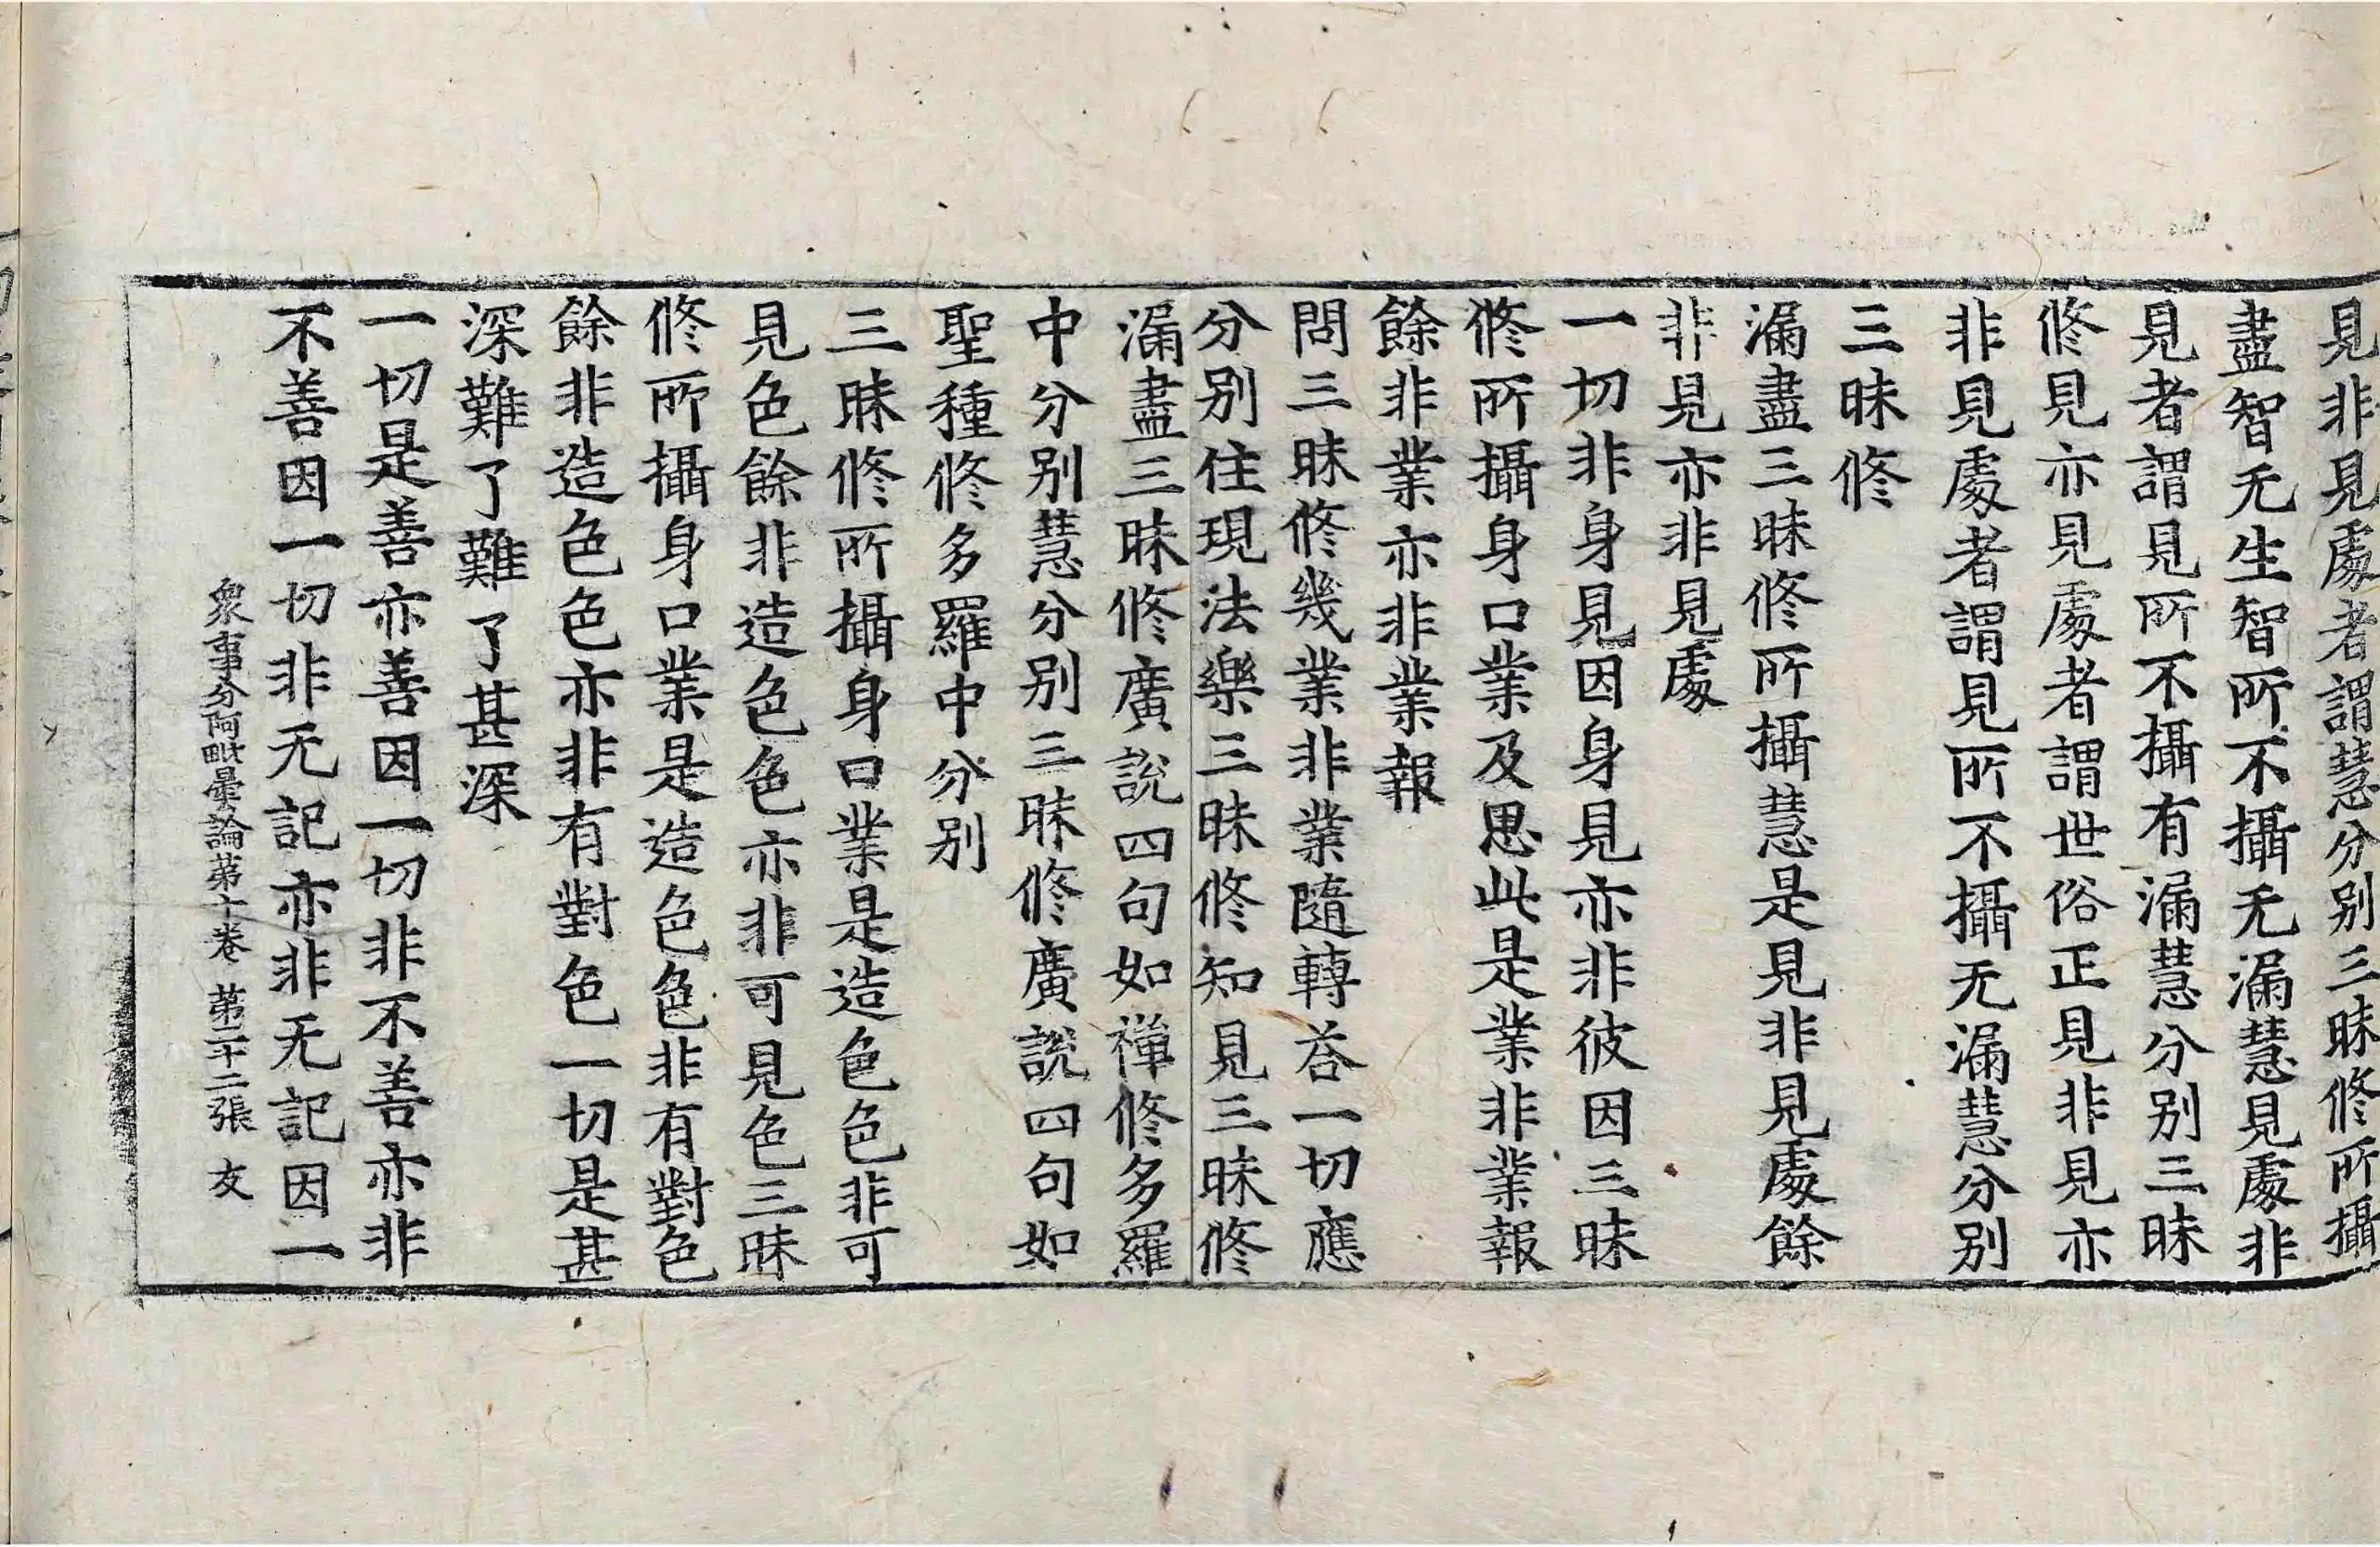 見非見處者謂慧分别三昧修所攝
盡智无生智所不攝无漏慧見處非
見者謂見所不攝有漏慧分别三昧
修見亦見處者謂世俗正見非見亦
非見處者謂見所不攝无漏慧分别
三昧修
漏盡三昧修所攝慧是見非見處餘
非見亦非見處
一切非身見因身見亦非彼因三昧
修所攝身口業及思此是業非業報
餘非業亦非業報
問三昧修幾業非業隨轉荅一切應
分别住現法樂三昧修知見三昧修
漏盡三昧修廣說四句如禪修多羅
中分别慧分别三昧修廣說四句如
聖種修多羅中分别
三昧修所攝身口業是造色色非可
見色餘非造色色亦非可見色三昧
修所攝身口業是造色色非有對色
餘非造色色亦非有對色一切是甚
深難了難了甚深
一切是善亦善因一切非不善亦非
不善因一切非无記亦非无記因一
衆事分阿毗曇論苐十卷 苐二十二張 友